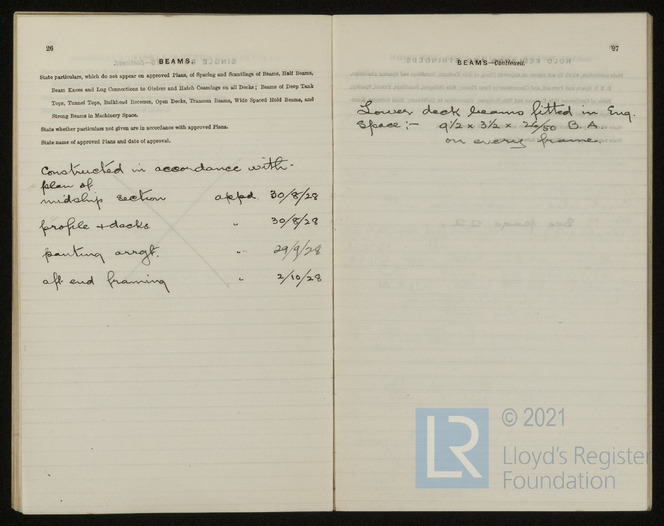 26
BEAMS.
State particulars, which do not appear on approved Plans, of Spacing and Scantlings of Beams, Half Beams,
Beam Knees and Lug Connections to Girders and Hatch Coamings on all Decks; Beams of Deep Tank
Tops, Tunnel Tops, Bulkhead Recesses, Open Decks, Transom Beams, Wide Spaced Hold Beams, and
Strong Beams in Machinery Space.
State whether particulars not given are in accordance with approved Plans.
State name of approved Plans and date of approval.
Constructed in accordance with
plan of
midship section appd 30/8/28
profile + decks " 30/8/28
panting arrgt. " 29/9/28
aft end framing " 2/10/28
27
BEAMS—Continued.
Lower deck beams fitted in Eng.
Space:- 9½ x 3½ x 26/50 B.A.
on every frame.
LR
© 2021
Lloyd's Register
Foundation